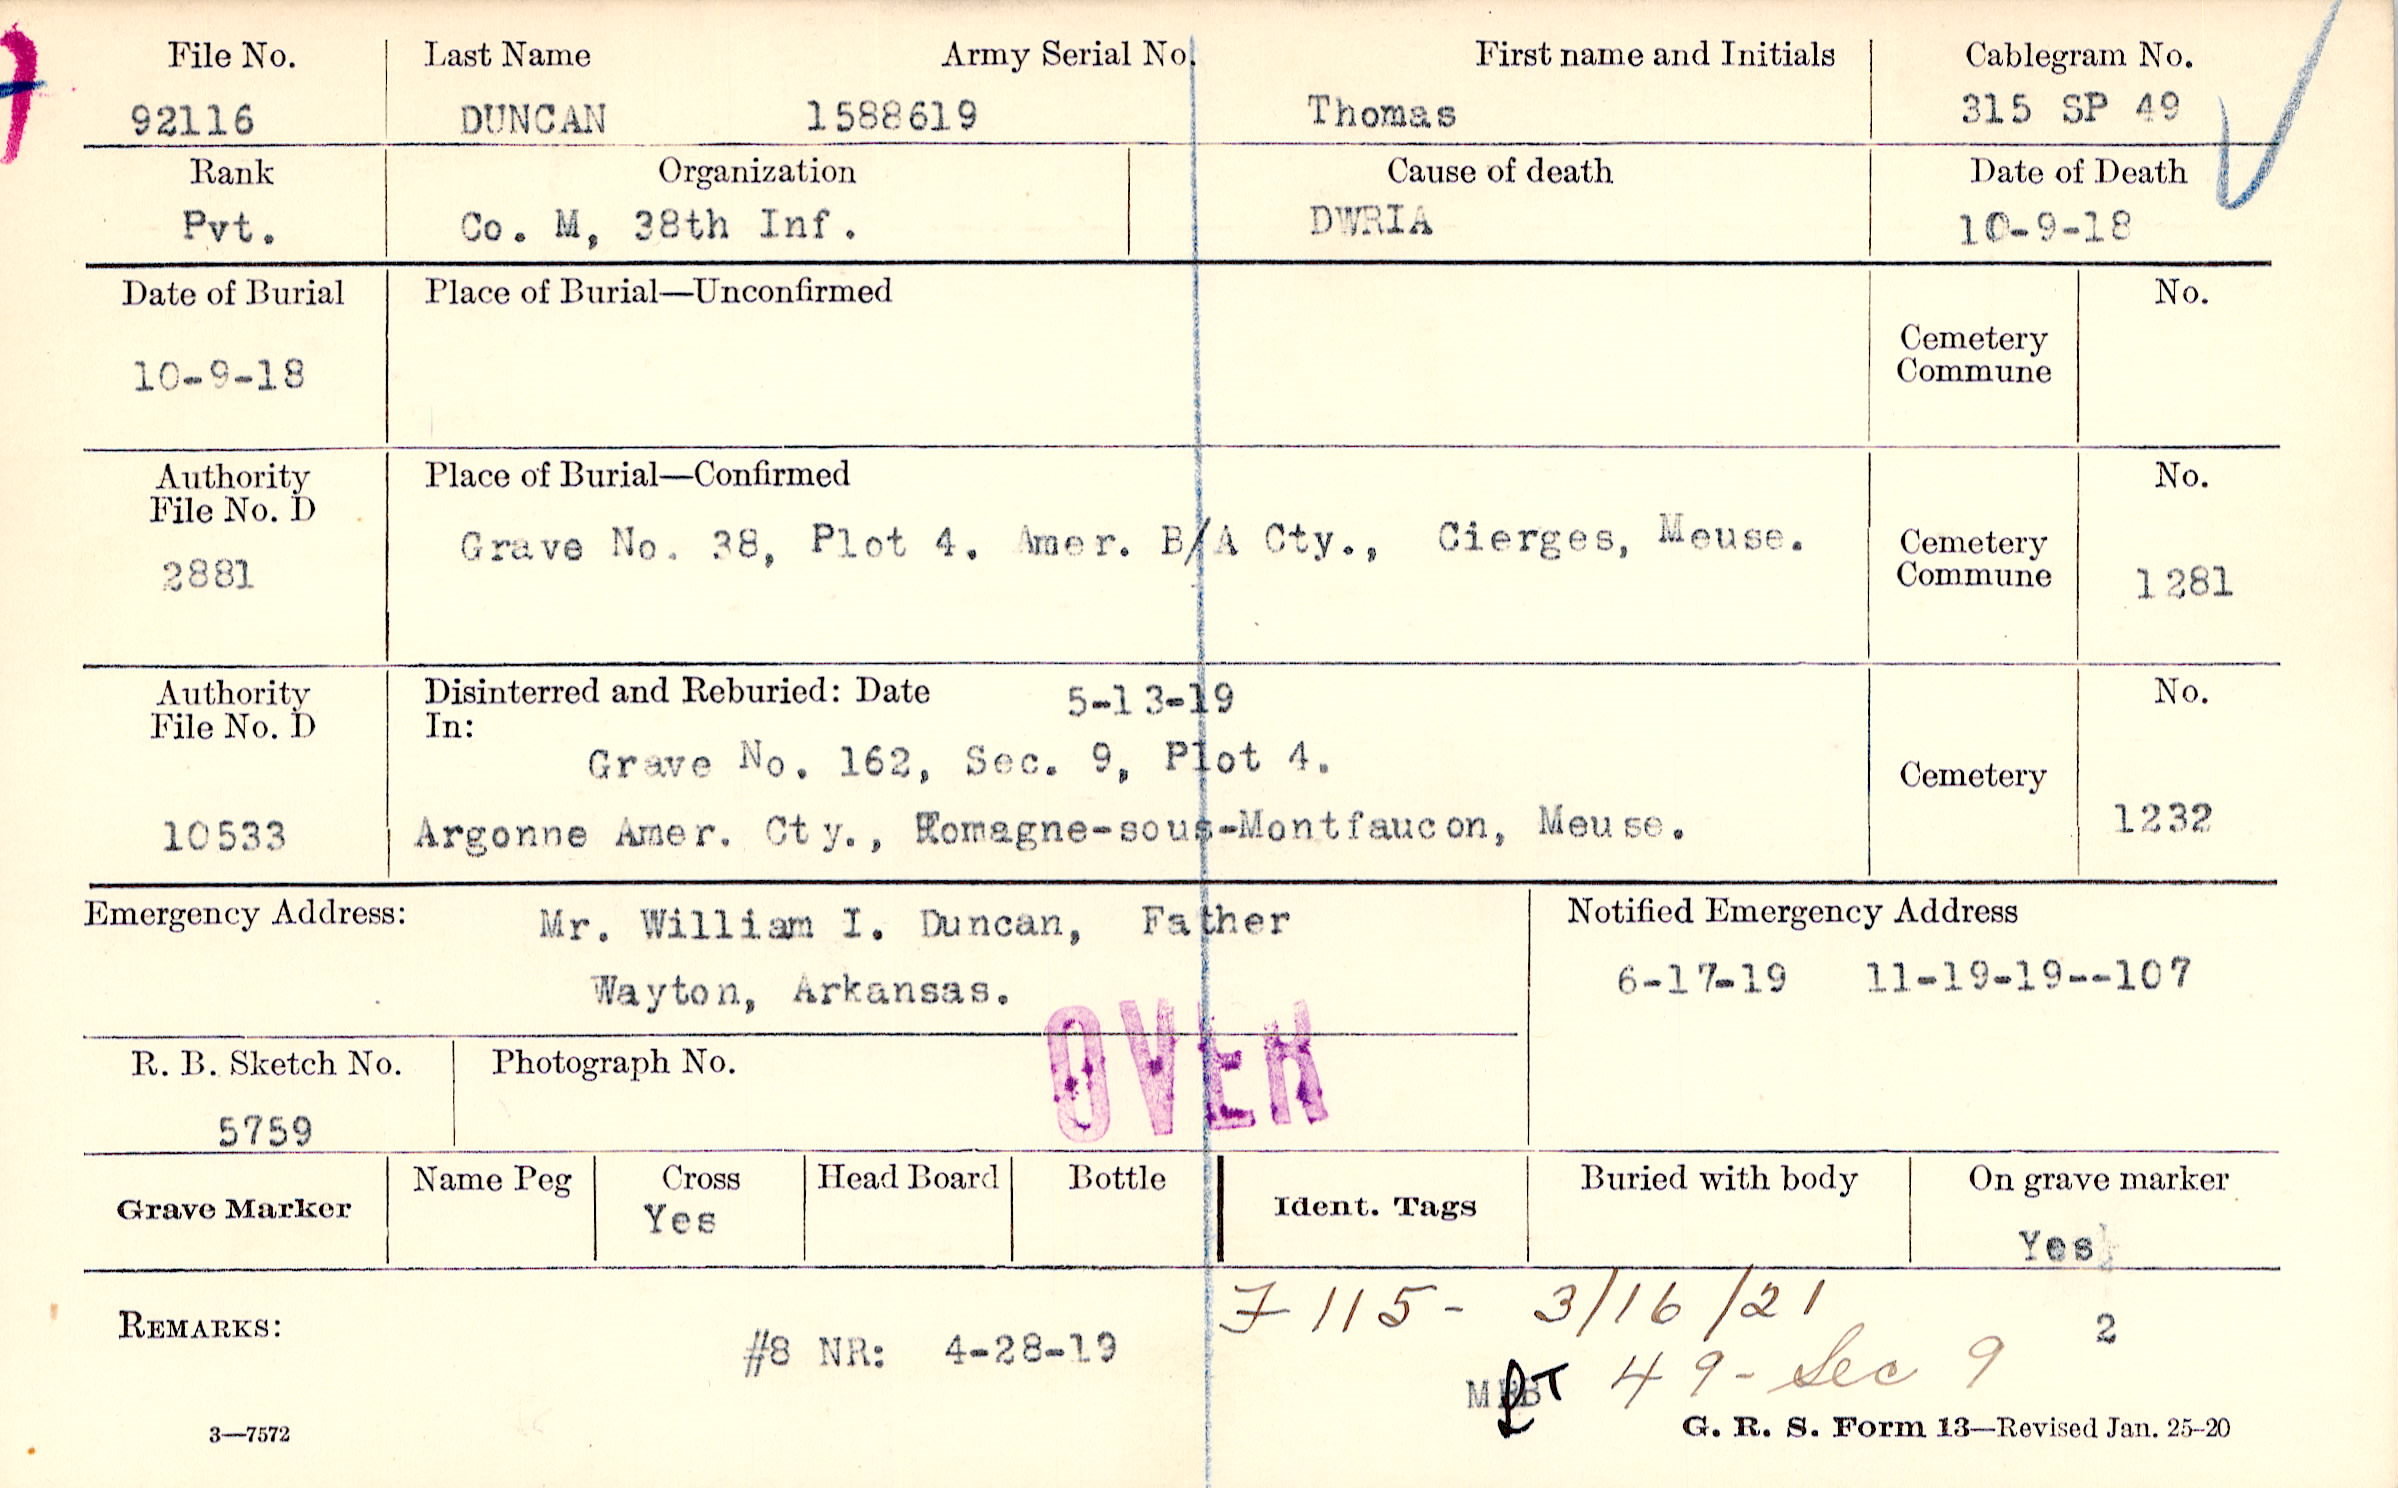 File No. Last Name Army Serial No. First name and Initials Cablegram No.
92116 DUNCAN 1588619 Thomas 315 SP 49
Rank Organization Cause of death Date of Death
Pvt. Co. M, 38th Inf. DWRIA 10-9-18
Date of Burial Place of Burial—Unconfirmed No.
Cemetery
Commune
10-9-18
Authority Place of Burial—Confirmed No.
File No. D
Grave No. 38, Plot 4. Amer. B/A Cty., Cierges, Meuse.
Cemetery
Commune
2881 1281
Authority Disinterred and Reburied: Date 5-13-19 No.
File No. D In:
Grave No. 162, Sec. 9, Plot 4.
Cemetery
10533 Argonne Amer. Cty., Romagne-sous-Montfaucon, Meuse. 1232
Emergency Address: Mr. William I. Duncan, Father Notified Emergency Address
Wayton, Arkansas. 6-17-19 11-19-19--107
OVER
R. B. Sketch No. Photograph No.
5759
Grave Marker Name Peg Cross Head Board Bottle Ident. Tags Buried with body On grave marker
Yes Yes
F 115- 3/16/21
REMARKS: #8 NR: 4-28-19 2
PT 49- Sec 9
3—7572 G. R. S. Form 13—Revised Jan. 25-20